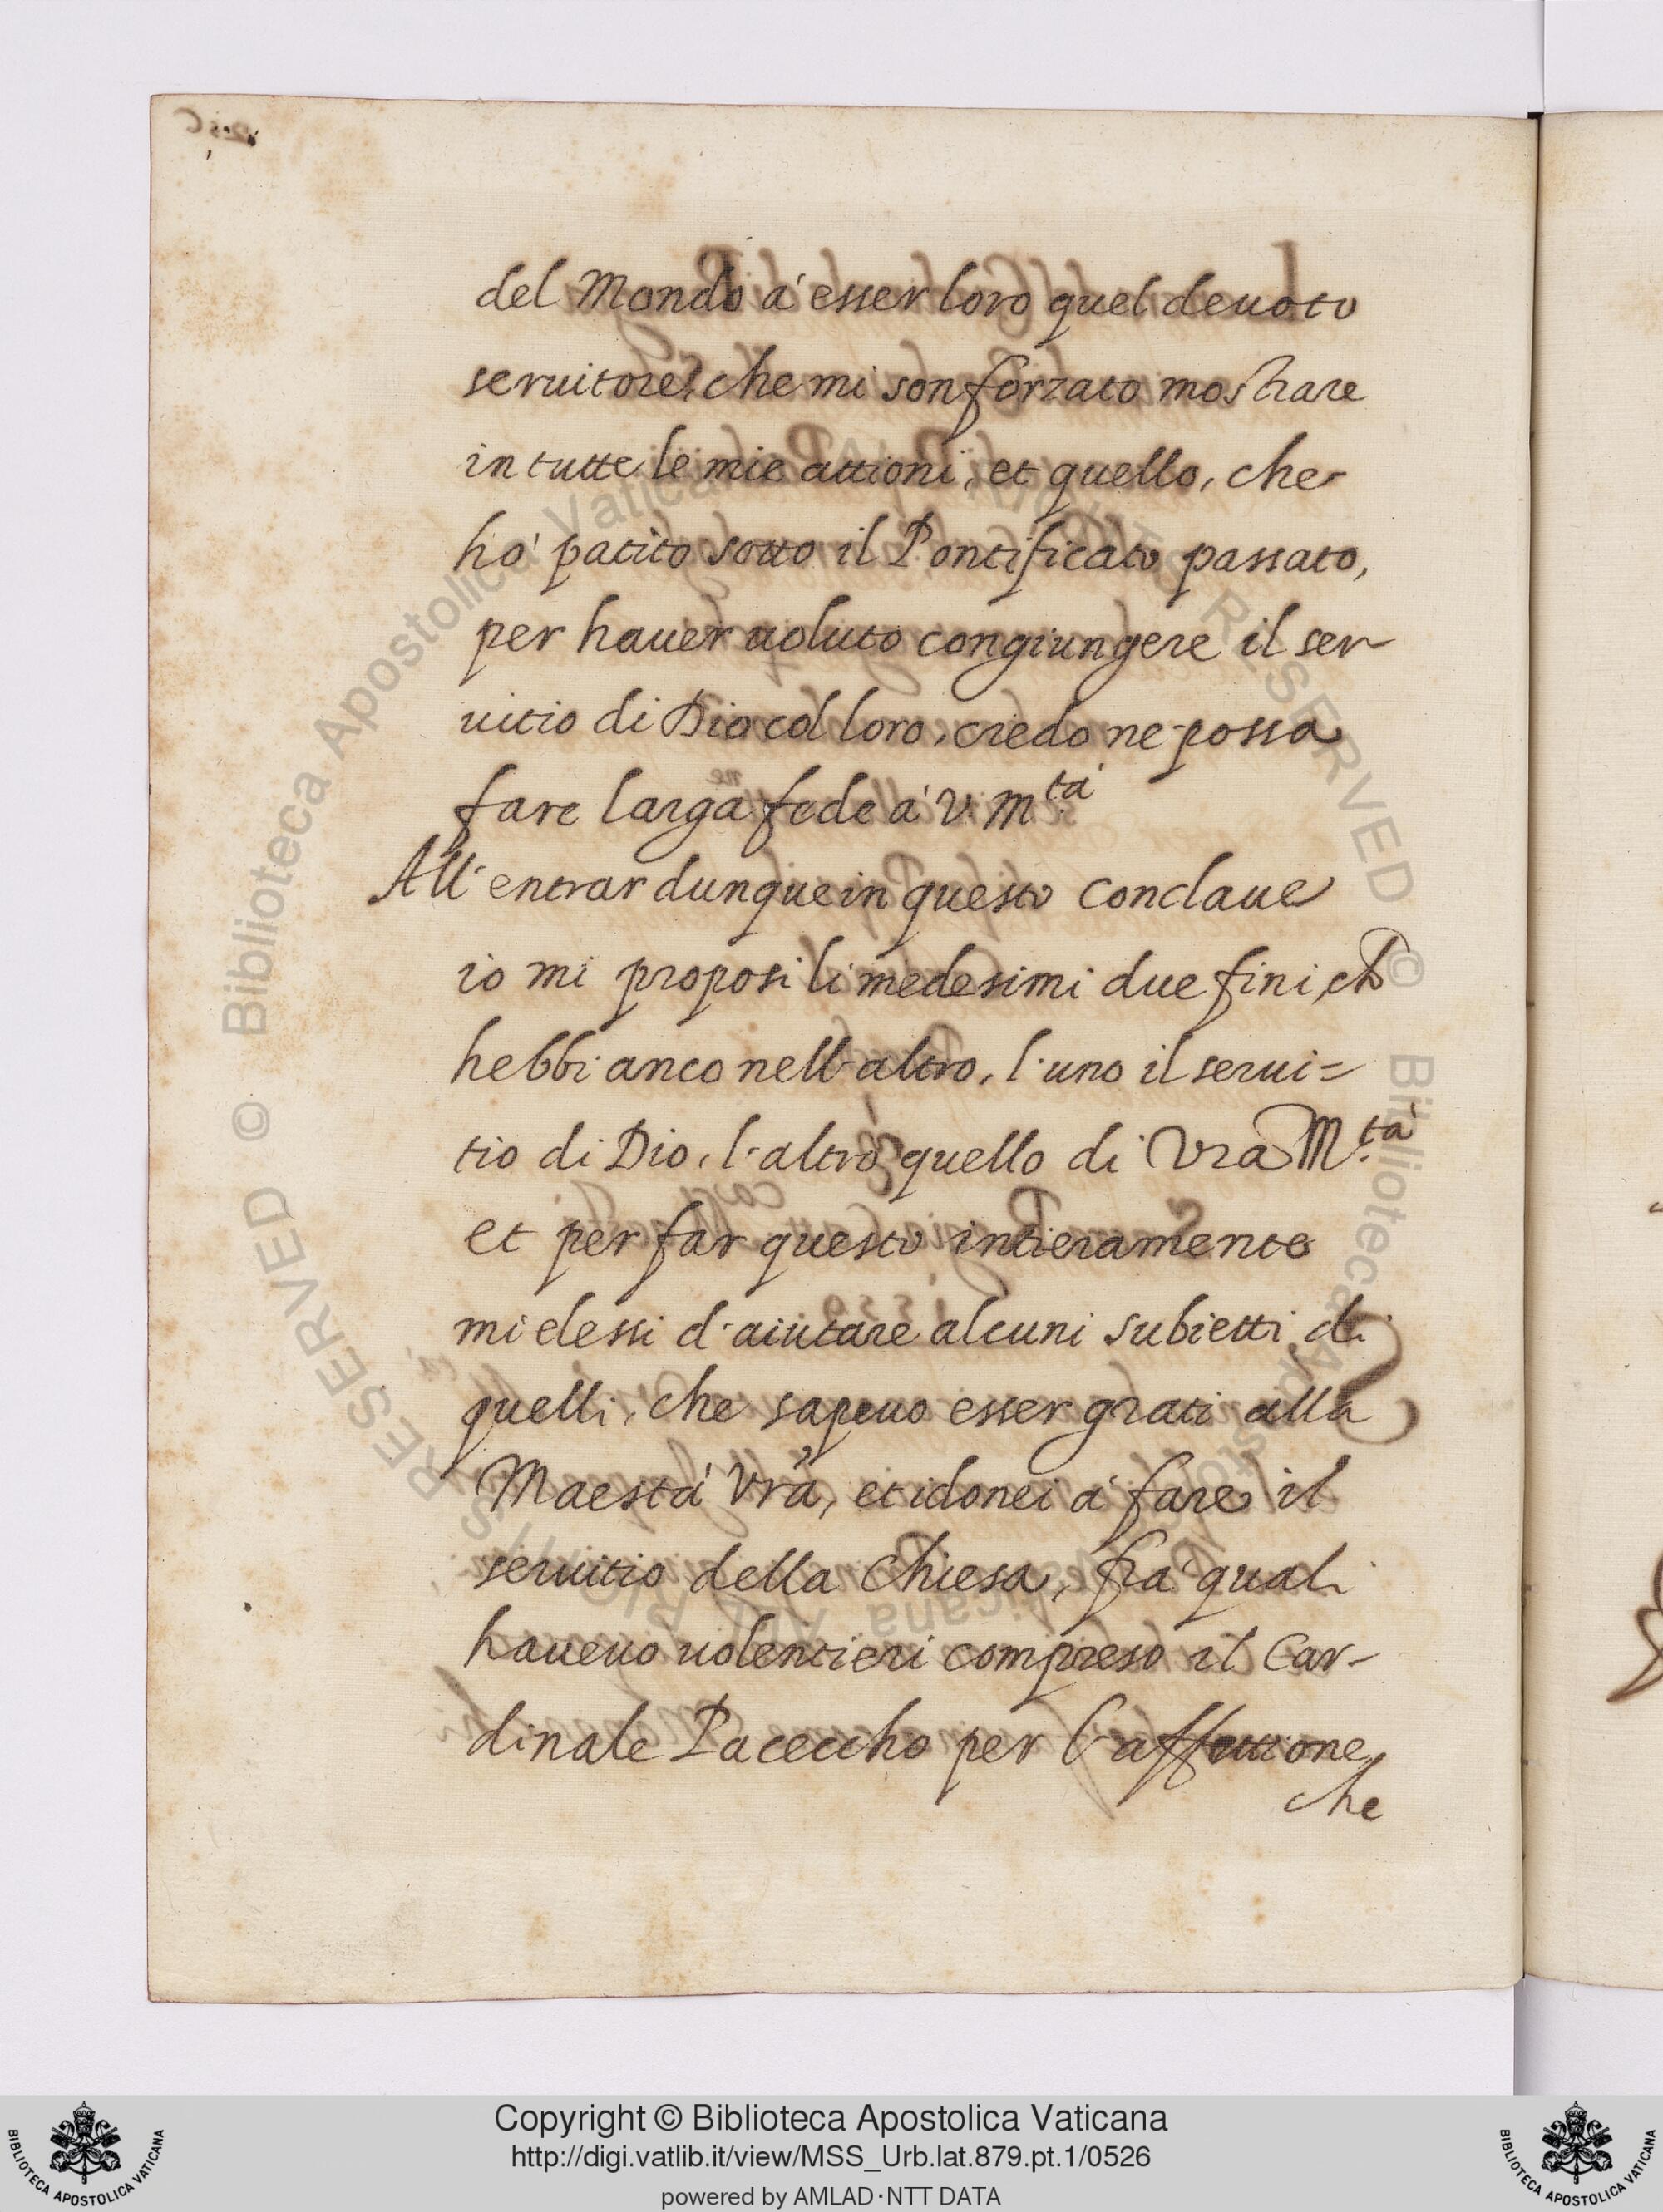 del Mondo à esser loro quel deuoto
seruitore, che mi son forzato mostrare
in tutte le mie attioni, et quello, che
hò patito sotto il Pontificato passato,
per hauer uoluto congiungere il ser-
uitio di Dio col loro, credo ne possa
fare larga fede à V. M.tà
All' entrar dunque in questo conclaue
io mi proposi li medesimi due fini, ch
hebbi anco nell' altro, l' uno il serui=
tio di Dio, l' altro quello di Vra M.tà
et per far questo intieramente
mi elessi d' aiutare alcuni subietti di
quelli, che sapeuo esser grati alla
Maestà Vra, et idonei à fare il
seruitio della Chiesa, frà quali
haueuo uolentieri compreso il Car-
dinale Paceccho per l' affettione,
che
Biblioteca Apostolica Vaticana
ALL RIGHTS RESERVED ©
Copyright © Biblioteca Apostolica Vaticana
http://digi.vatlib.it/view/MSS_Urb.lat.879.pt.1/0526
powered by AMLAD·NTT DATA
BIBLIOTECA APOSTOLICA VATICANA
BIBLIOTECA APOSTOLICA VATICANA